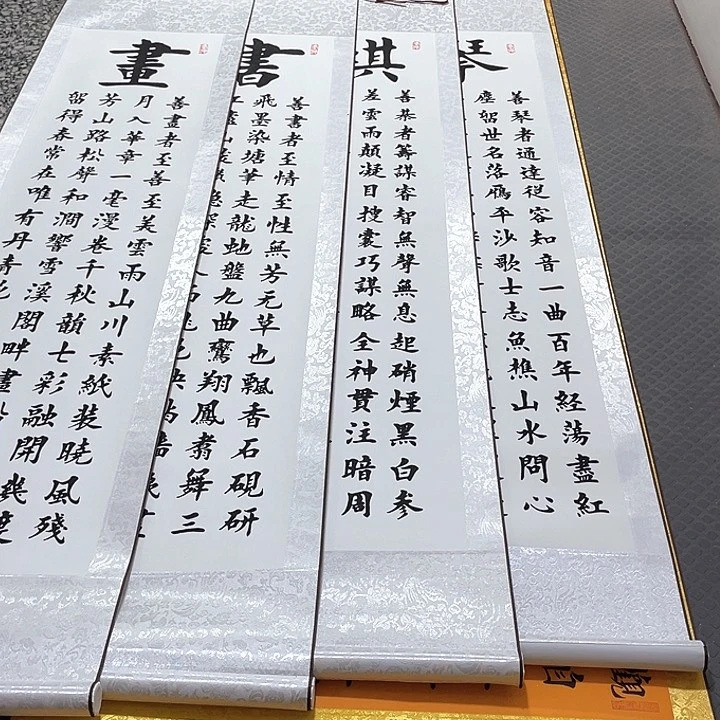 琴
善琴者通達從容知音一曲百年經蕩盡紅
塵留世名落雁平沙歌士志魚樵山水問心
棋
善棊者籌謀睿智無聲無息起硝煙黑白參
差雲雨顛凝目搜囊巧謀略全神貫注暗周
書
善書者至情至性無芳元草也飄香石硯研
飛墨染塘筆走龍虵盤九曲鸞翔鳳翥舞三
畫
善畫者至善至美雲雨山川素紙裝曉風殘
月入華章一毫漫卷千秋韻七彩融開幾度
芳山路松聲和澗響雪溪閣畔畫
留得春常在唯有丹青